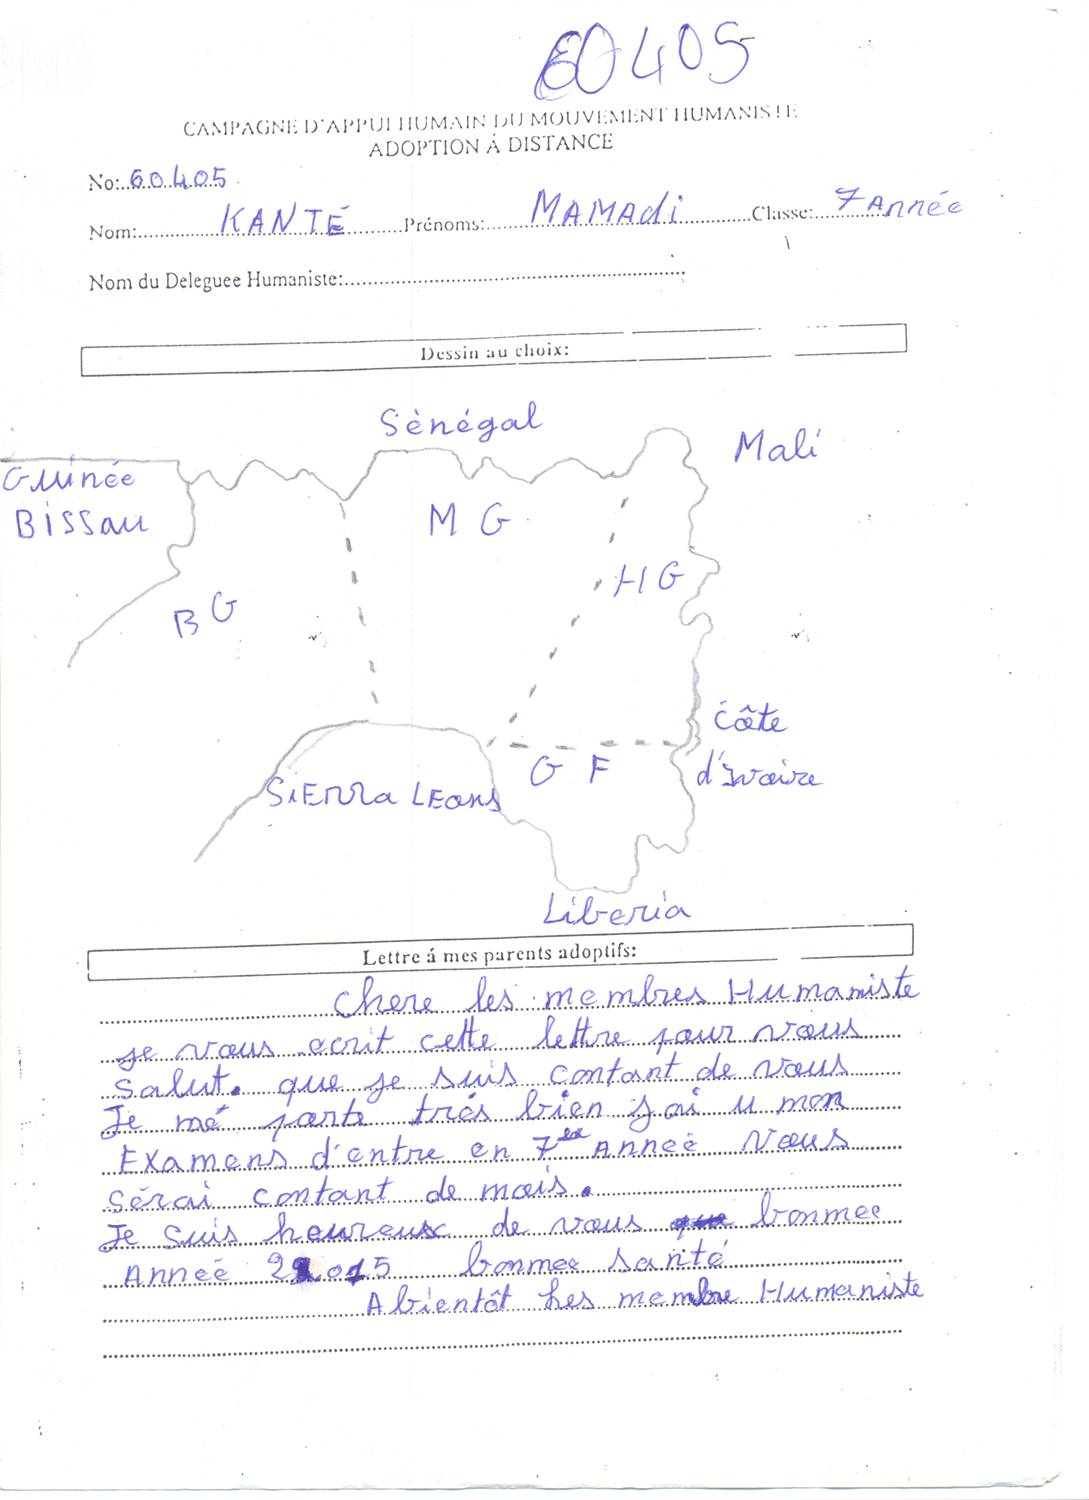 60405
CAMPAGNE D'APPUI HUMAIN DU MOUVEMENT HUMANISTE
ADOPTION Á DISTANCE
No:..60405
Nom:...............KANTÉ..........Prénoms:........MAMAdi..........Classe:........7 Année
Nom du Deleguee Humaniste:..................................................
Dessin au choix:
Sènégal
Mali
Guinée
Bissau
M G
H G
B G
Côte
d'Ivoire
G F
SiErra LEons
Liberia
Lettre á mes parents adoptifs:
Chere les membres Humaniste
je vous ecrit cette lettre pour vous
Salut. que je suis contant de vous
Je mé porte trés bien j'ai u mon
Examens d'entre en 7 Anneè vous
Sérai contant de mois.
Je suis heureux de vous bonmee
Anneé 2015 bonmee santé
A bientôt hes membre Humaniste